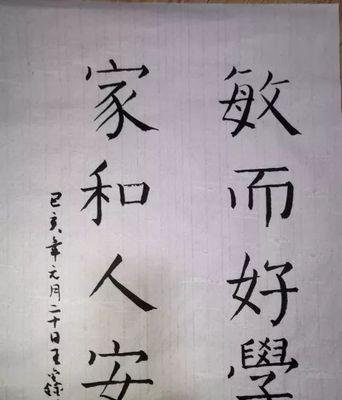 敏而好學
家和人安
己亥年元月二十日王